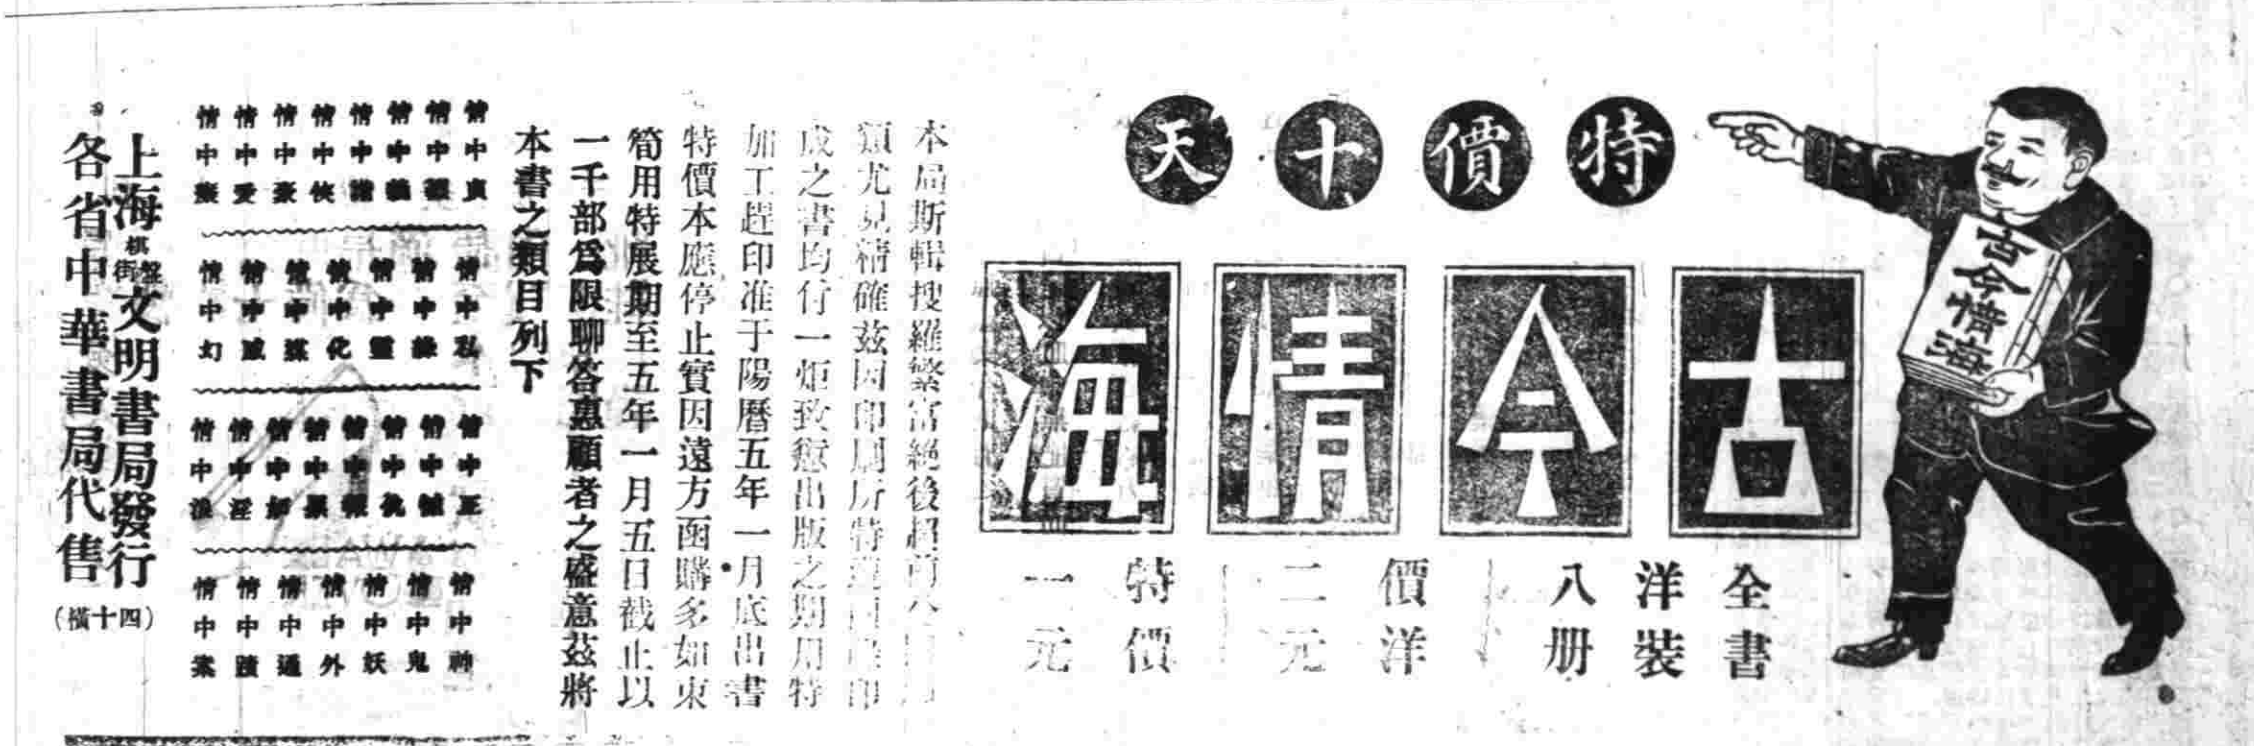 特價十天
古今情海
古今情海
全書
洋裝
八册
價洋
二元
特價
一元
本局斯輯搜羅繁富絕後超前
類尤見精確茲因印刷所特
成之書均付一炬致愆出版之期用特
加工趕印准于陽曆五年一月底出書
特價本應停止實因遠方函購多如束
筍用特展期至五年一月五日截止以
一千部爲限聊答惠顧者之盛意茲將
本書之類目列下
情中貞
情中
情中
情中
情中俠
情中豪
情中愛
情中
情中私
情中緣
情中靈
情中化
情中
情中
情中幻
情中正
情中憾
情中仇
情中報
情中
情中
情中淫
情中
情中神
情中鬼
情中妖
情中外
情中通
情中蹟
情中案
上海棋盤街文明書局發行
各省中華書局代售
(四十橫)